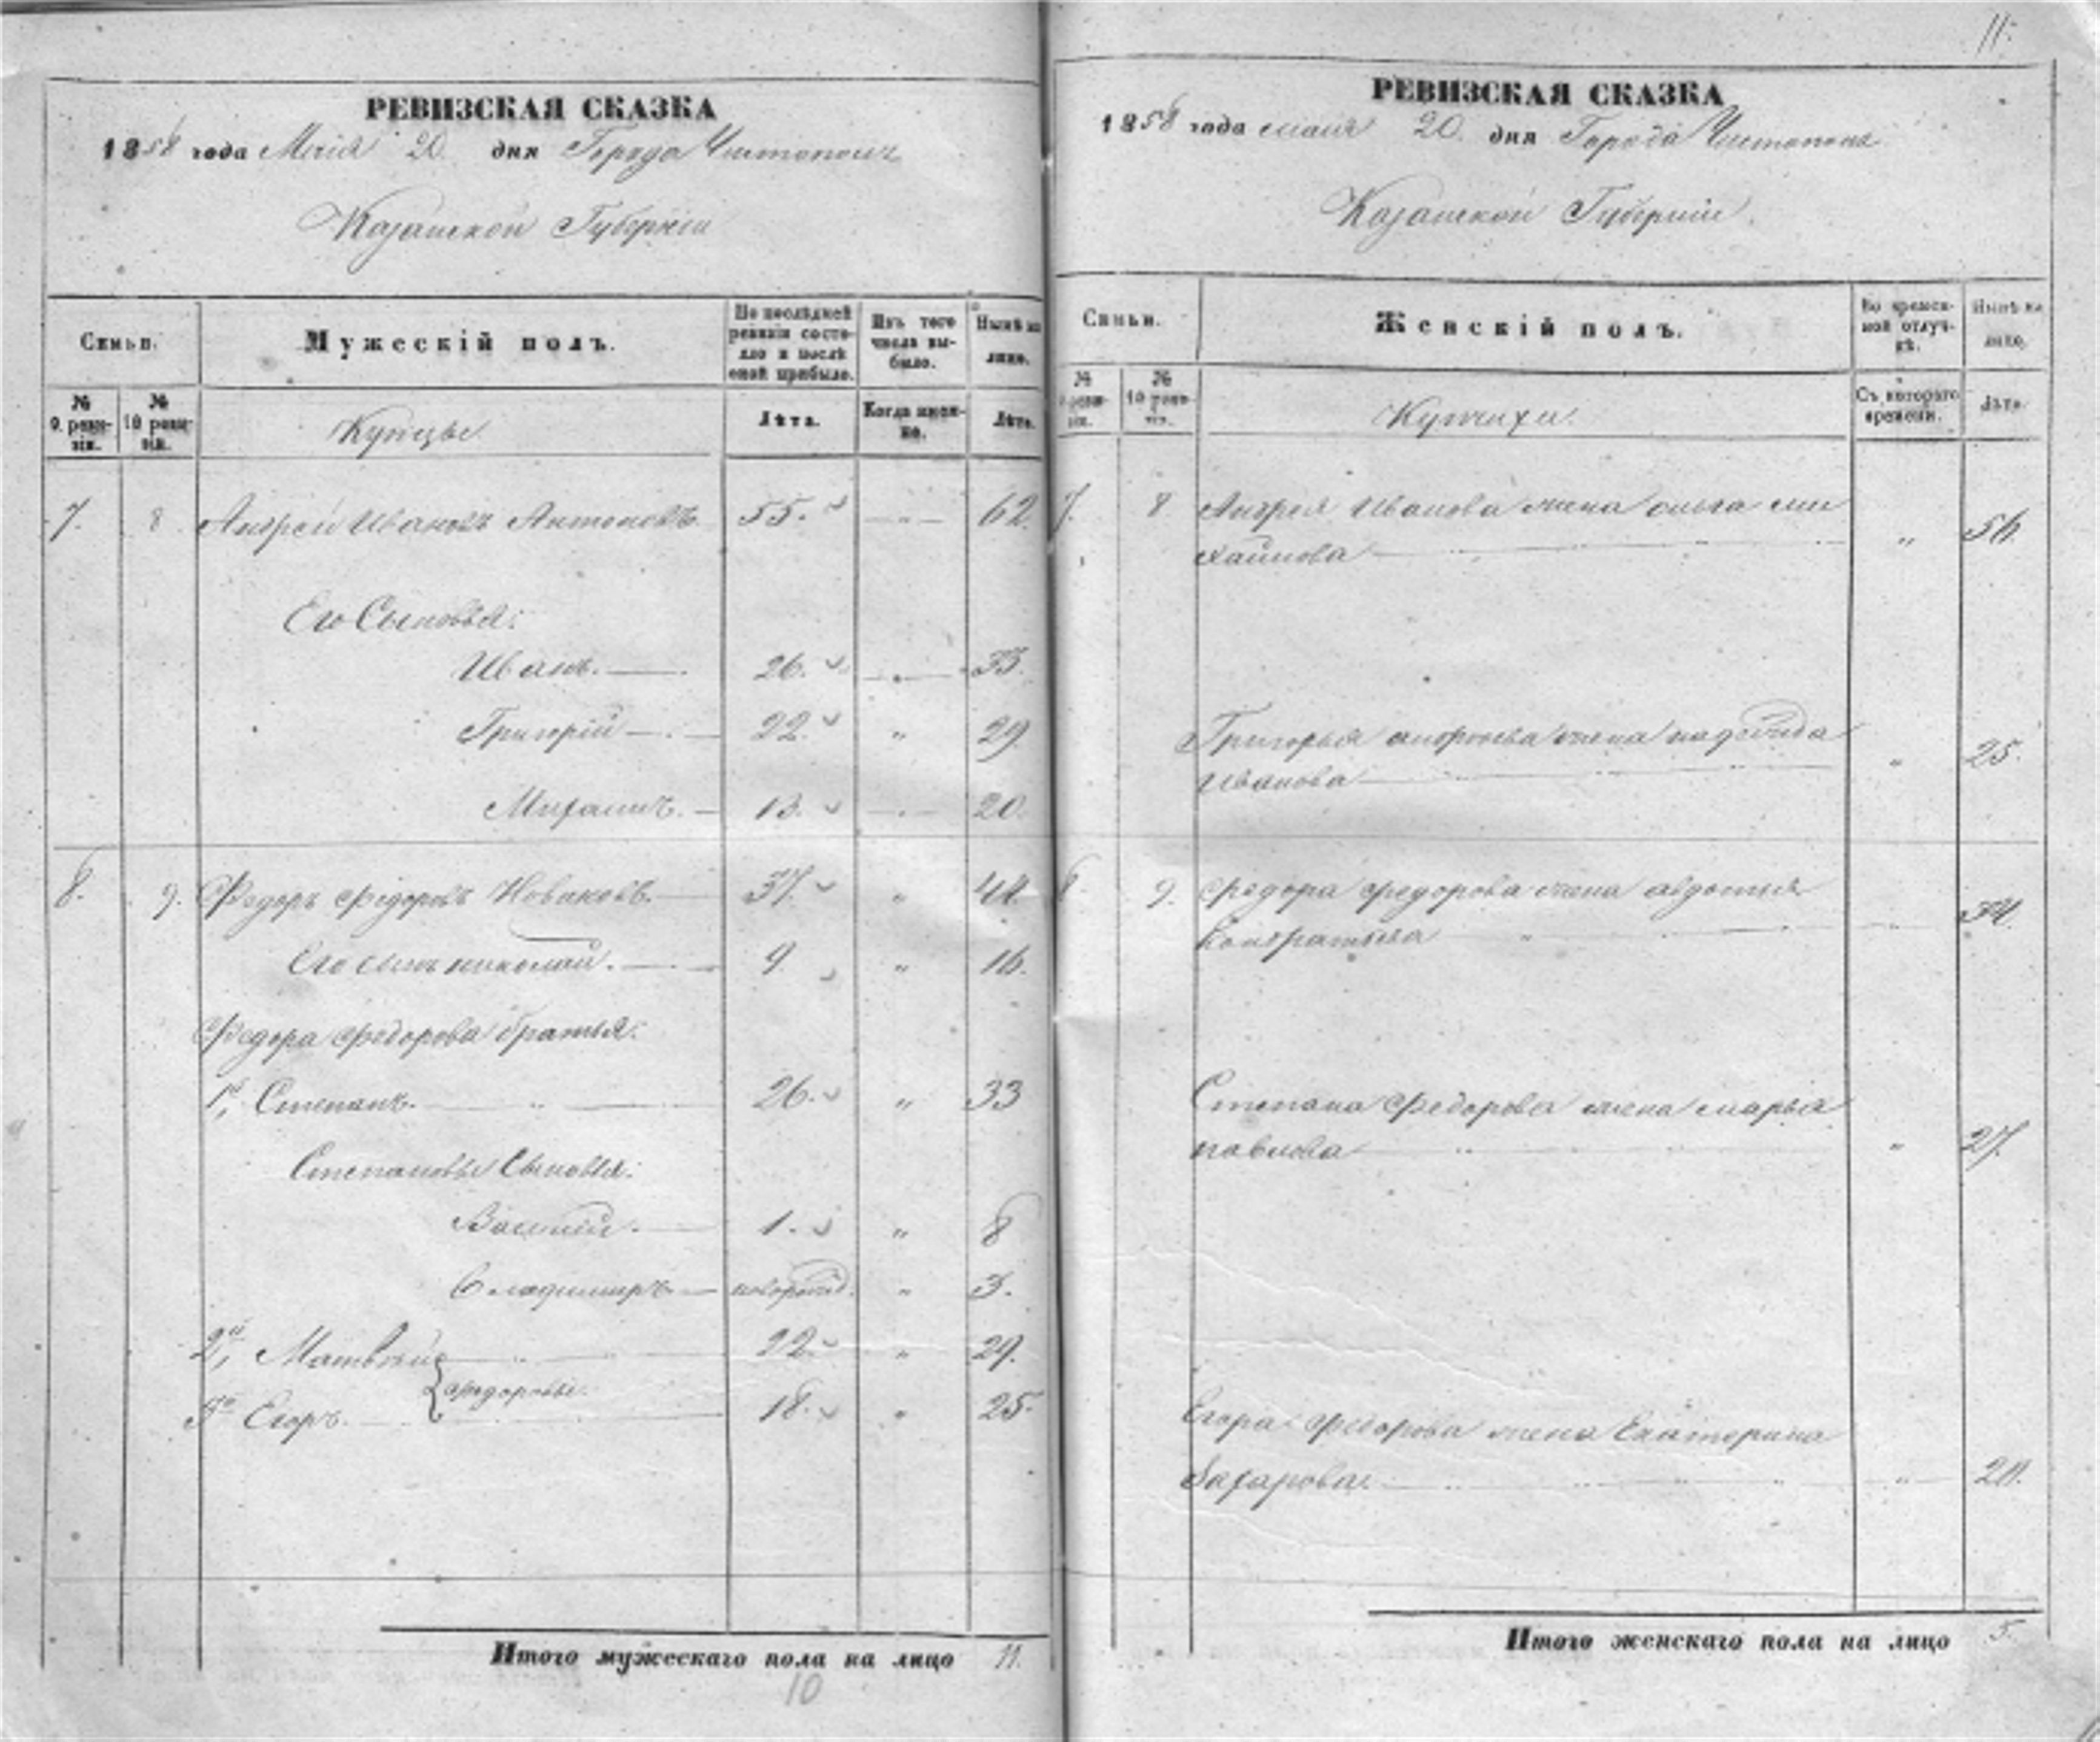 РЕВИЗСКАЯ СКАЗКА
1858 года Мая 20 дня Города Чистополя
Казанской Губерніи
Семьи.
Мужескій полъ.
По послѣдней ревизіи состояло и послѣ оной прибыло.
Изъ того числа выбыло.
Нынѣ на лицо.
№ 9. ревизіи.
№ 10 ревизіи.
Купцы
Лѣта.
Когда именно.
Лѣта.
7. 8 Андрей Ивановъ Антоновъ 55. 62.
Его Сыновья:
Иванъ. 26. 33.
Григорій 22. " 29.
Михаилъ. 13. 20.
8. 9. Федоръ Федоровъ Новиковъ. 37. " 44.
Его сынъ николай. 9 " 16.
Федора Федорова братья:
1й, Степанъ. 26. " 33
Степановы Сыновья:
Василій. 1. " 8
Владимиръ новорожд. " 3.
2й, Матвѣй 22. " 29.
федоровы.
3й Егоръ. 18. " 25.
Итого мужескаго пола на лицо 11.
10
11.
РЕВИЗСКАЯ СКАЗКА
1858 года мая 20. дня Города Чистополя
Казанской Губерніи.
Семьи.
Женскій полъ.
Во временной отлучкѣ.
Нынѣ на лицо.
№ 9 ревизіи.
№ 10 ревизіи.
Купчихи.
Съ котораго времени.
Лѣта.
7. 8 Андрея Иванова жена ольга ми
хайлова " 56.
Григорья андреева жена надежда
Иванова " 25.
8 9. Федора федорова жена авдотья
Кондратьева " 34.
Степана Федорова жена марья
павлова " 27.
Егора Федорова жена Екатерина
Захарова. " 20.
Итого женскаго пола на лицо 5.